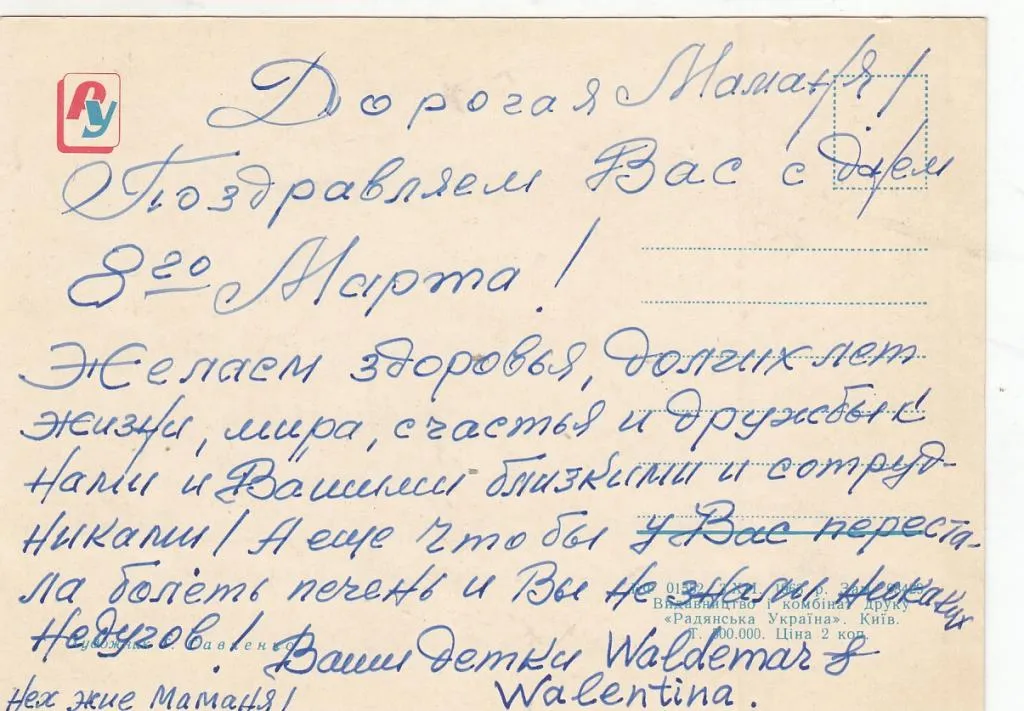 РУ
Дорогая Маманя!
Поздравляем Вас с днем
8го Марта!
Желаем здоровья, долгих лет
жизни, мира, счастья и дружбы с
нами и Вашими близкими и сотруд-
никами! А еще чтобы у Вас переста-
ла болеть печень и Вы не знали никаких
недугов!
Ваши детки Waldemar &
Walentina.
Нех жие Маманя!
Художник Савченко
Видавництво і комбінат друку
«Радянська Україна». Київ.
Т. 500.000. Ціна 2 коп.